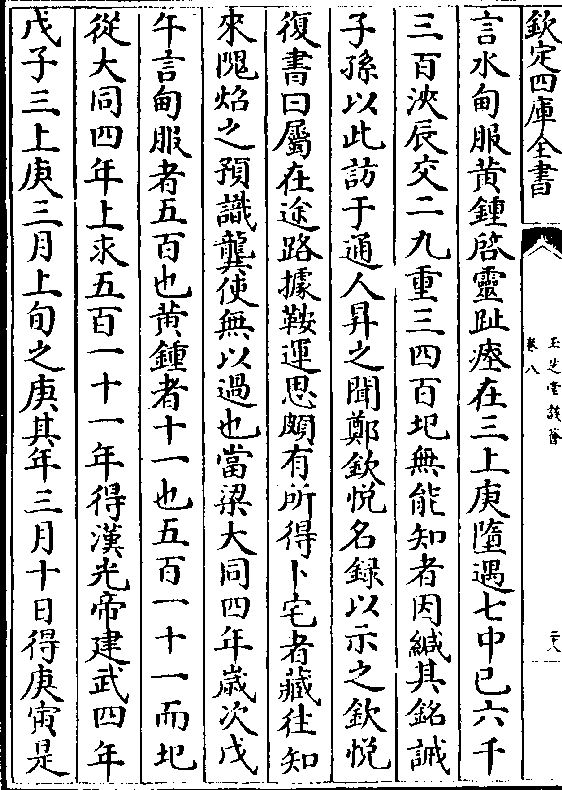 欽定四庫全書
玉芝堂談薈
卷八
二八
言水甸服黃鍾啓靈趾瘞在三上庚墮遇七中已六千
三百浹辰交二九重三四百圯無能知者因緘其銘誡
子孫以此訪于通人昇之聞鄭欽悅名録以示之欽悅
復書曰屬在途路據鞍運思頗有所得卜宅者藏往知
來隗炤之預識龔使無以過也當梁大同四年歲次戊
午言甸服者五百也黃鍾者十一也五百一十一而圯
從大同四年上求五百一十一年得漢光帝建武四年
戊子三上庚三月上旬之庚其年三月十日得庚寅是